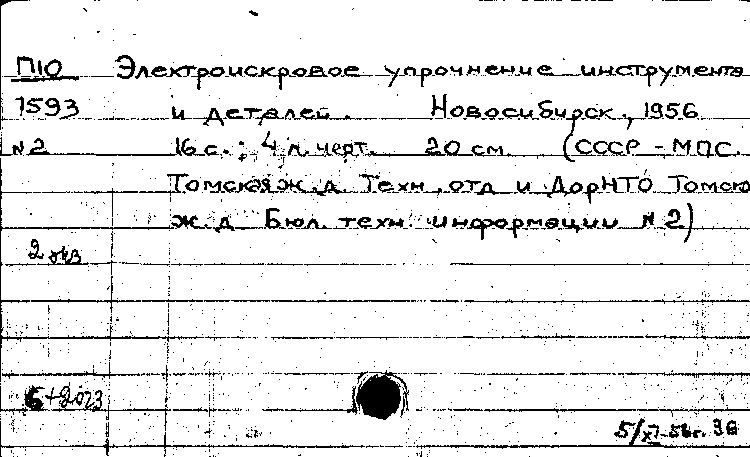 П10 Электроискровое упрочнение инструмента
1593 и деталей. Новосибирск, 1956
№2 16 с.; 4 л. черт. 20 см (СССР - МПС.
Томская ж.д. Техн. отд и ДорНТО Томско
ж.д Бюл. техн. информации №2)
2 экз
5/XI-56г.